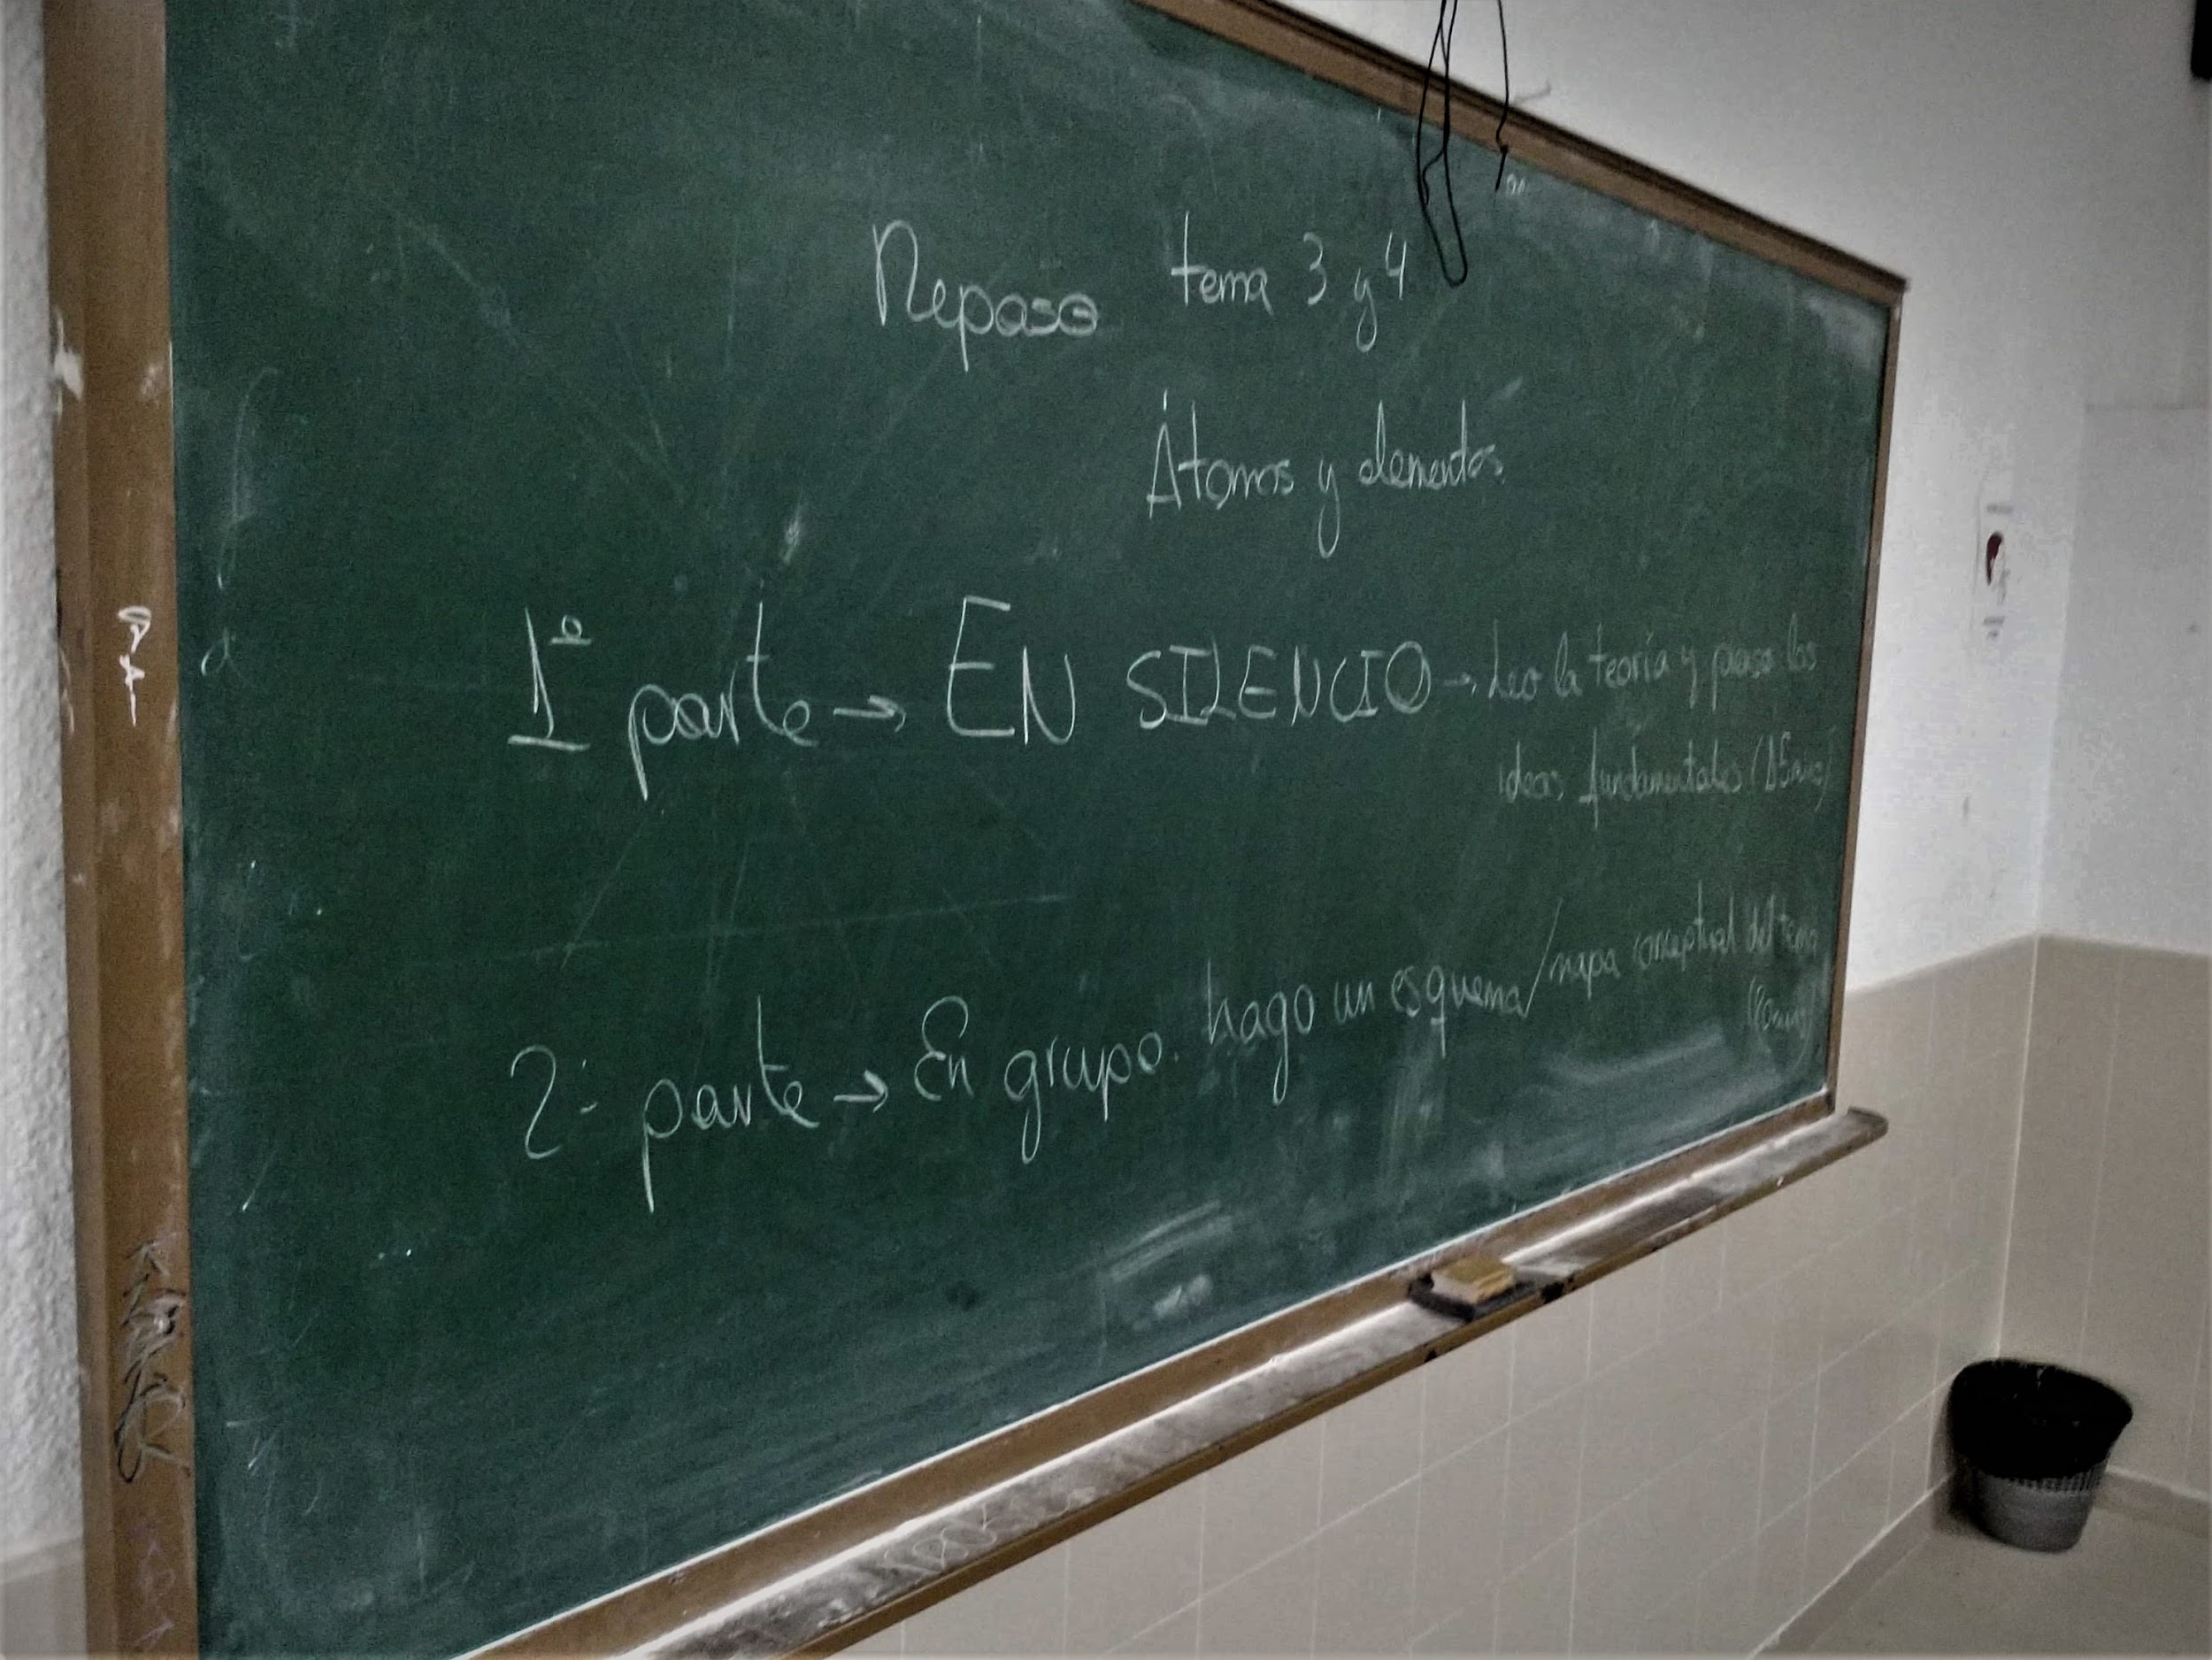 Repaso tema 3 y 4
Átomos y elementos.
1º parte → EN SILENCIO → Leo la teoría y paso las
ideas fundamentales (15mins)
2ª parte → En grupo. hago un esquema/mapa conceptual del tema
(20mins)